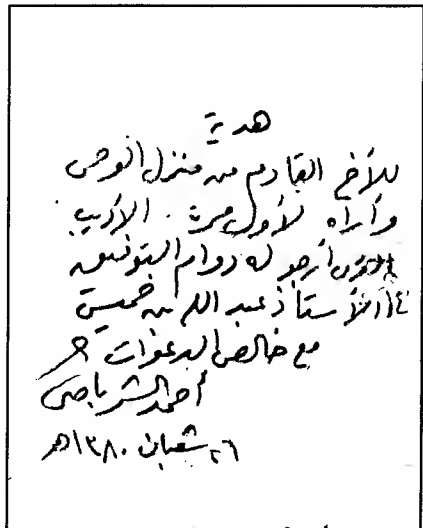 هدية
للأخ القادم من منزل الوحى
وأراه لأول مرة . الأديب
الذى أرجو له دوام التوفيق
الأستاذ عبد الله بن خميس
مع خالص الدعوات
أحمد الشرباصى
٢٦ شعبان ١٣٨٠هـ